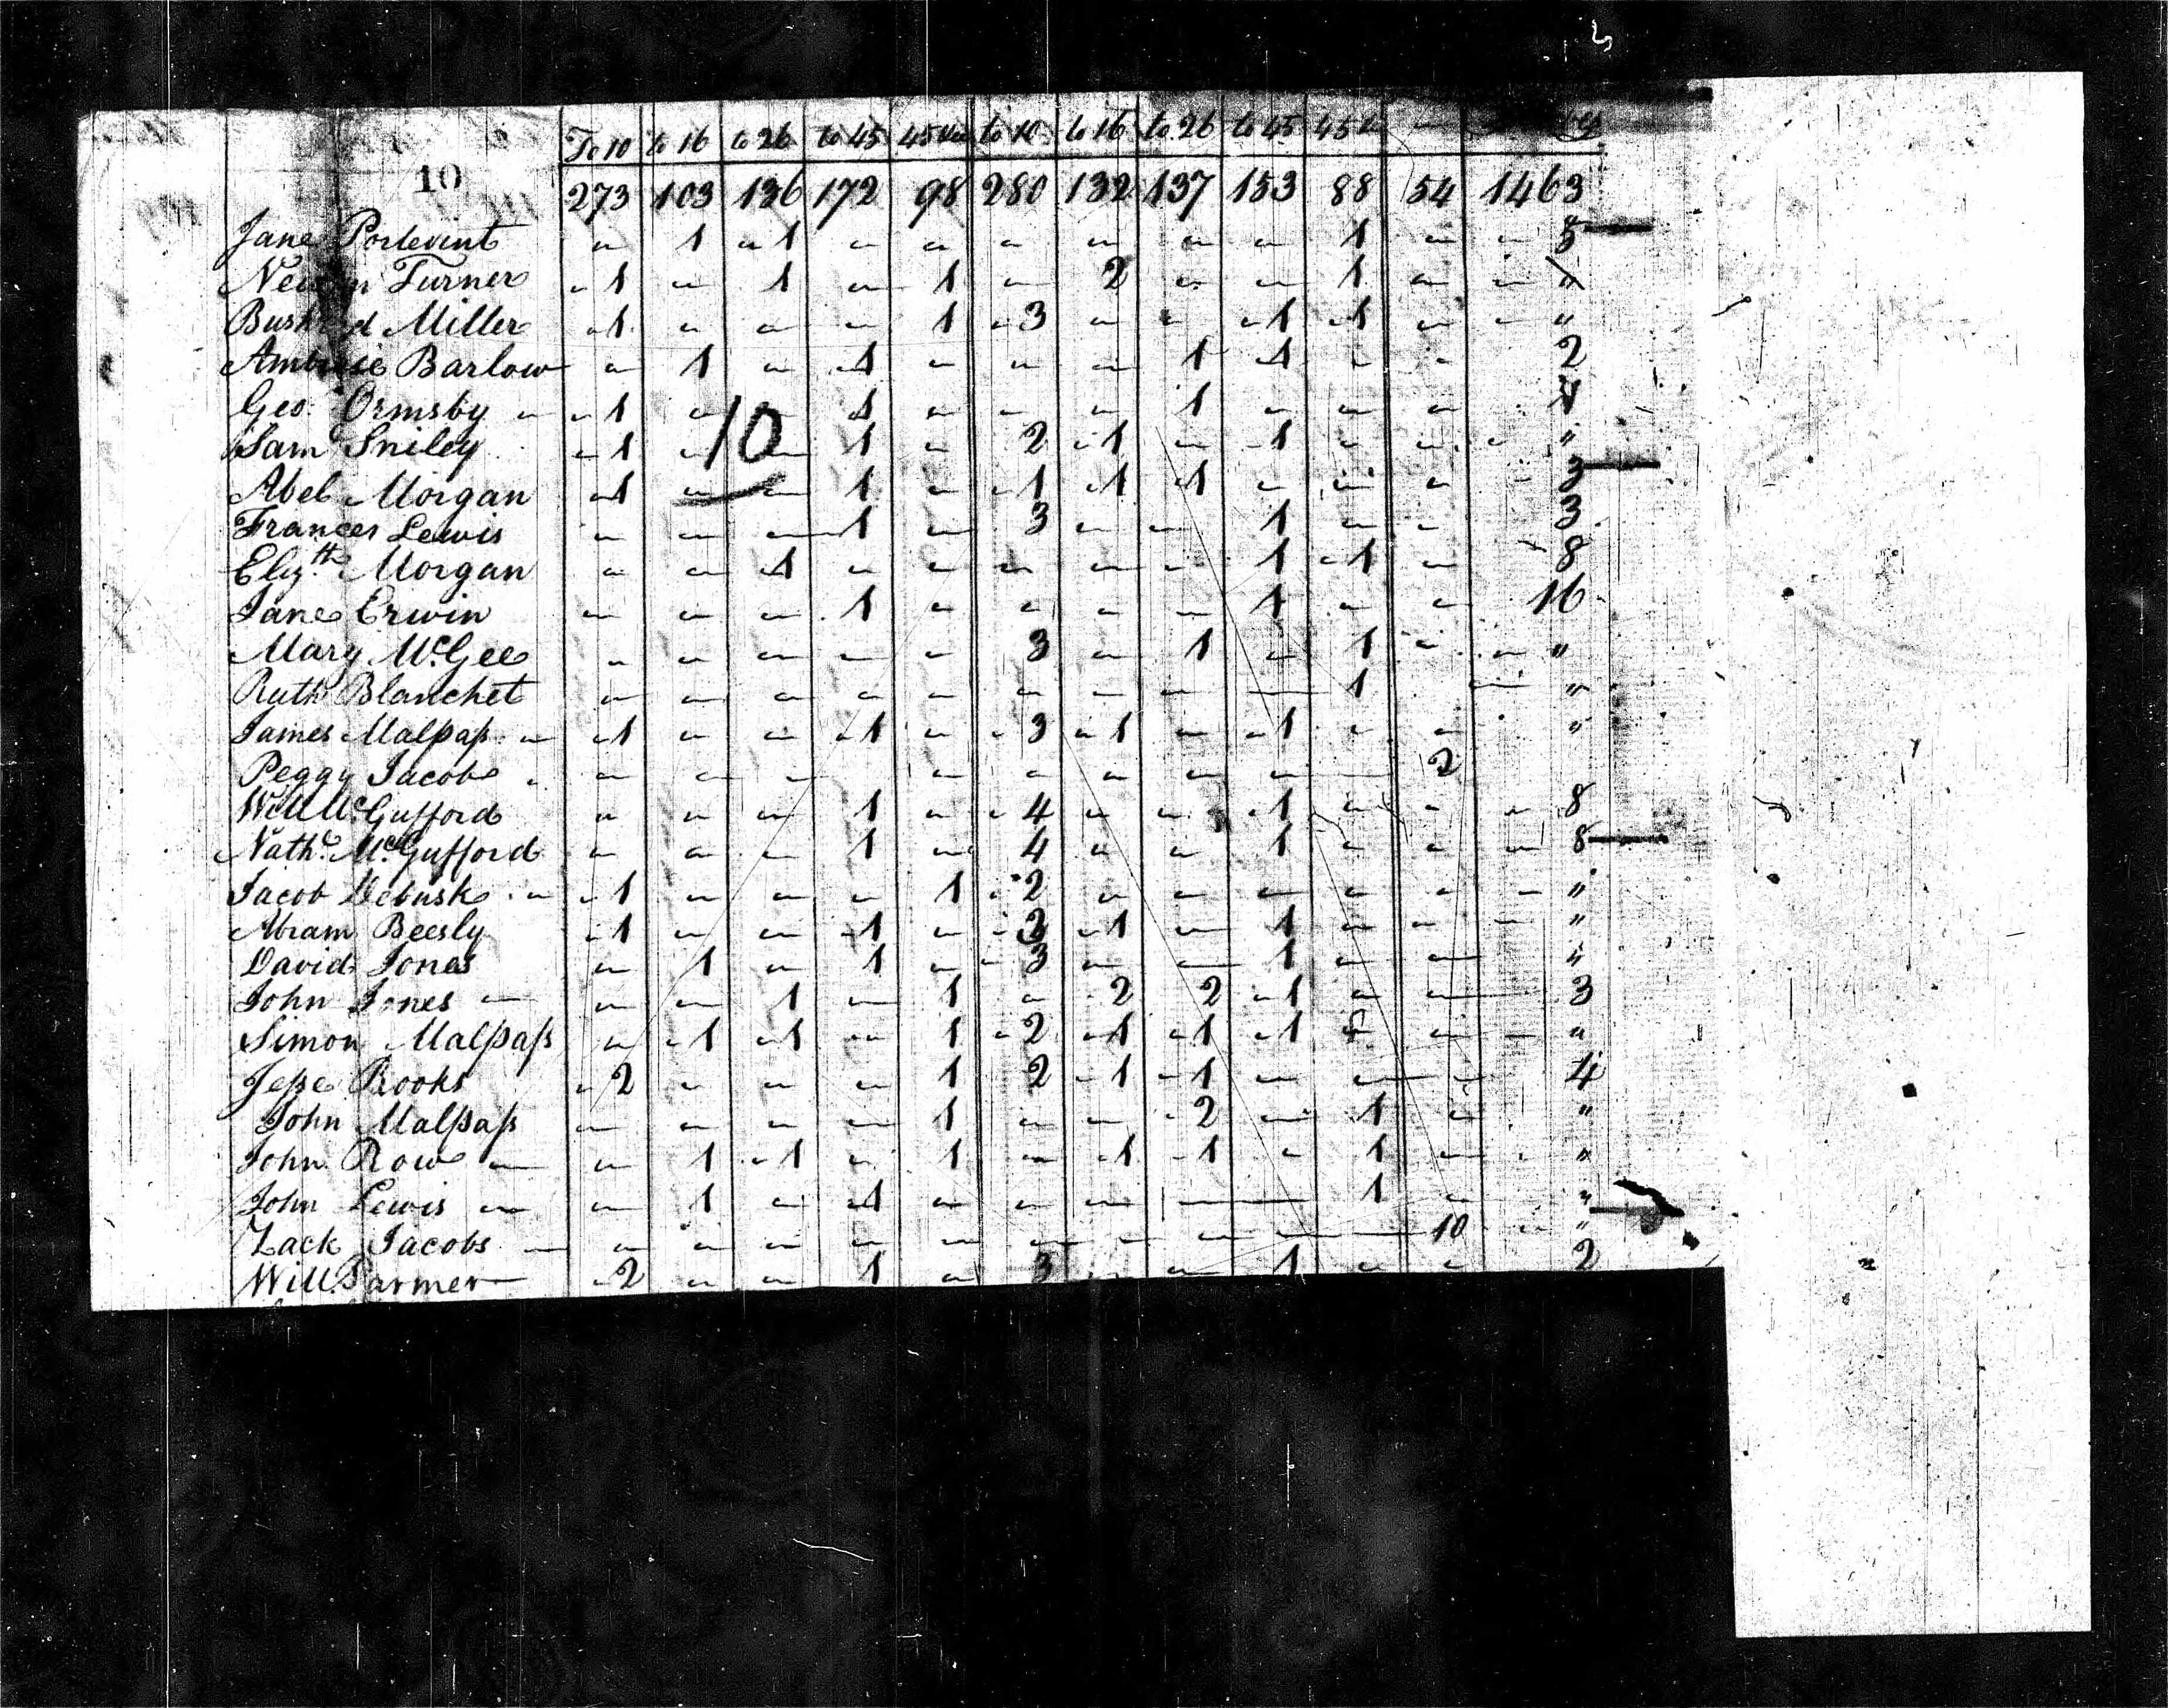 To 10 to 16 to 26 to 45 45 to 10 to 16 to 26 to 45 45
10
273 103 136 172 98 280 132 137 153 88 54 1463
Jane Portevint " 1 " 1 " " " " " " 1 " " 5
Turner " 1 " 1 " 1 " 2 " " 1 " "
Miller " 1 " " " 1 " 3 " " " 1 " 1 " " "
Ambrose Barlow " 1 " 1 " " " 1 1 " " 2
Geo. Ormsby " " 1 " 1 " " " 1 " " "
10
Saml Sniley " 1 " " 1 " 2 " 1 " 1 " " " "
Abel Morgan " 1 " " 1 " " 1 " 1 " 1 " " " " 3
Frances Lewis " " " 1 " 3 " " 1 " " 3
Elizth Morgan " " 1 " " " " " 1 " 1 " 8
Jane Erwin " " " 1 " " " " 1 " " 16
Mary McGee " " " " " 3 " 1 " 1 " " "
Ruth Blanchet " " " " " " " " " 1 " "
James Malpass " " 1 " " " 1 " " 3 " 1 " " 1 " " "
Peggy Jacobs " " " " " " " " " 2
Will McGufford " " " 1 " " 4 " " 1 " " " 8
Nathl McGufford " " " 1 " 4 " " 1 " " " 8
Jacob Debusk " " 1 " " " 1 " 2 " " " " " " "
Abram Beesly " 1 " " " 1 " " 2 " 1 " 1 " " " "
David Jones " 1 " 1 " " 3 " " 1 " " "
John Jones " " " 1 " 1 " 2 2 " 1 " " 3
Simon Malpass " " 1 " 1 " 1 " 2 " 1 " 1 " 1 " " "
Jesse Rooks " 2 " " " 1 2 " 1 " 1 " " " 4
John Malpass " " " " 1 " " " 2 " 1 " "
John Row " " 1 " 1 " 1 " " 1 " 1 " 1 " " "
John Lewis " " 1 " " 1 " " " " 1 " "
Zack Jacobs " " " " " " " " " " 10 " "
Will Parmer " 2 " " 1 " 3 " " 1 " " 2